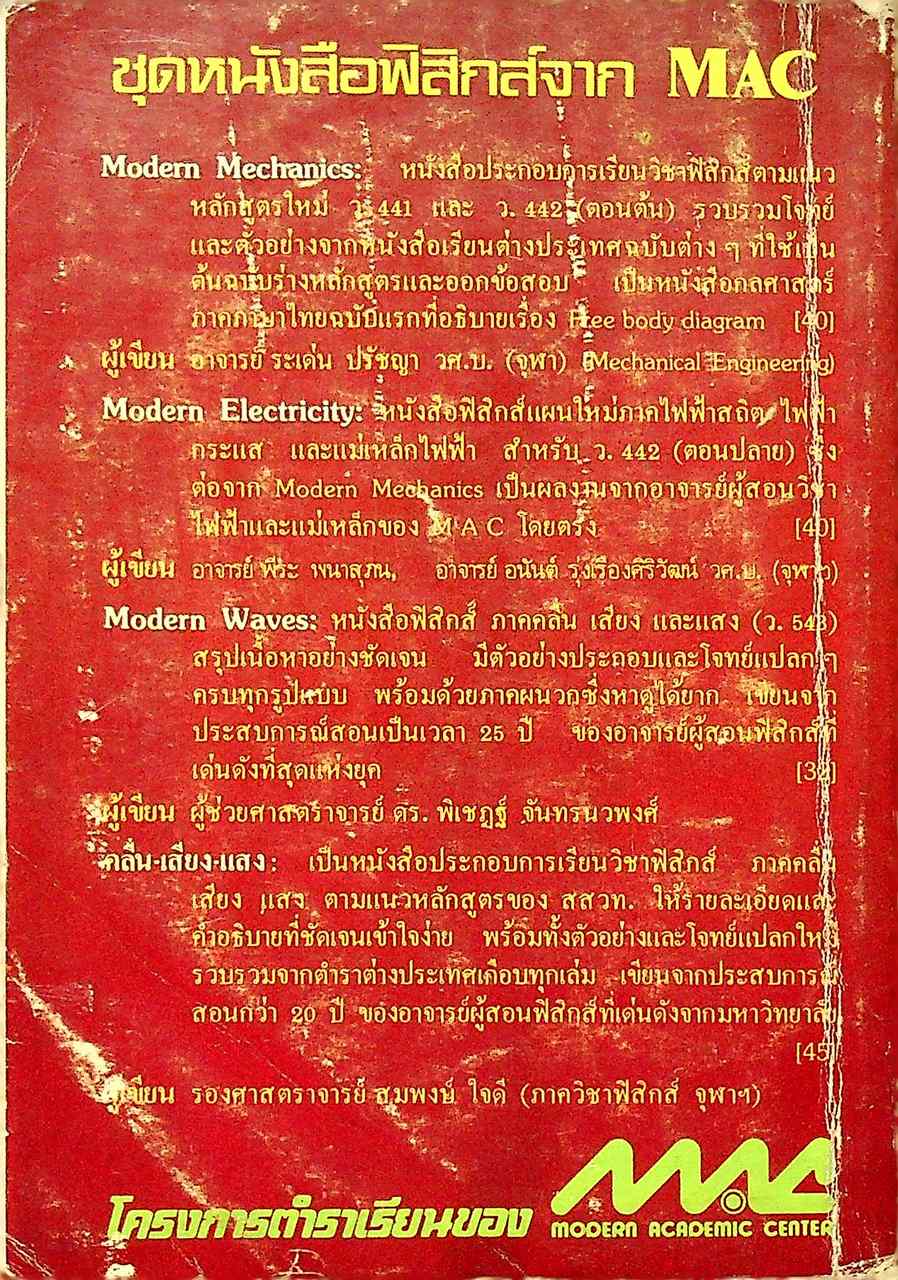 ชุดหนังสือฟิสิกส์จาก MAC
Modern Mechanics: หนังสือประกอบการเรียนวิชาฟิสิกส์ตามแนว
หลักสูตรใหม่ ว. 441 และ ว. 442 (ตอนต้น) รวบรวมโจทย์
และตัวอย่างจากหนังสือเรียนต่างประเทศฉบับต่าง ๆ ที่ใช้เป็น
ต้นฉบับร่างหลักสูตรและออกข้อสอบ เป็นหนังสือกลศาสตร์
ภาคภาษาไทยฉบับแรกที่อธิบายเรื่อง Free body diagram [40]
ผู้เขียน อาจารย์ ระเด่น ปรัชญา วศ.บ. (จุฬา) (Mechanical Engineering)
Modern Electricity: หนังสือฟิสิกส์แผนใหม่ภาคไฟฟ้าสถิต ไฟฟ้า
กระแส และแม่เหล็กไฟฟ้า สำหรับ ว. 442 (ตอนปลาย) ซึ่ง
ต่อจาก Modern Mechanics เป็นผลงานจากอาจารย์ผู้สอนวิชา
ไฟฟ้าและแม่เหล็กของ M A C โดยตรง [40]
ผู้เขียน อาจารย์ พีระ พนาสุภน, อาจารย์ อนันต์ รุ่งเรืองศิริวัฒน์ วศ.บ. (จุฬาฯ)
Modern Waves: หนังสือฟิสิกส์ ภาคคลื่น เสียง และแสง (ว. 543)
สรุปเนื้อหาอย่างชัดเจน มีตัวอย่างประกอบและโจทย์แปลก ๆ
ครบทุกรูปแบบ พร้อมด้วยภาคผนวกซึ่งหาดูได้ยาก เขียนจาก
ประสบการณ์สอนเป็นเวลา 25 ปี ของอาจารย์ผู้สอนฟิสิกส์ที่
เด่นดังที่สุดแห่งยุค
ผู้เขียน ผู้ช่วยศาสตราจารย์ ดร. พิเชฎฐ์ จันทรนวพงศ์
คลื่น-เสียง-แสง: เป็นหนังสือประกอบการเรียนวิชาฟิสิกส์ ภาคคลื่น
เสียง แสง ตามแนวหลักสูตรของ สสวท. ให้รายละเอียดและ
คำอธิบายที่ชัดเจนเข้าใจง่าย พร้อมทั้งตัวอย่างและโจทย์แปลกใหม่
รวบรวมจากตำราต่างประเทศเกือบทุกเล่ม เขียนจากประสบการณ์
สอนกว่า 20 ปี ของอาจารย์ผู้สอนฟิสิกส์ที่เด่นดังจากมหาวิทยาลัย
[45]
ผู้เขียน รองศาสตราจารย์ สมพงษ์ ใจดี (ภาควิชาฟิสิกส์ จุฬาฯ)
MAC
โครงการตำราเรียนของ MODERN ACADEMIC CENTER